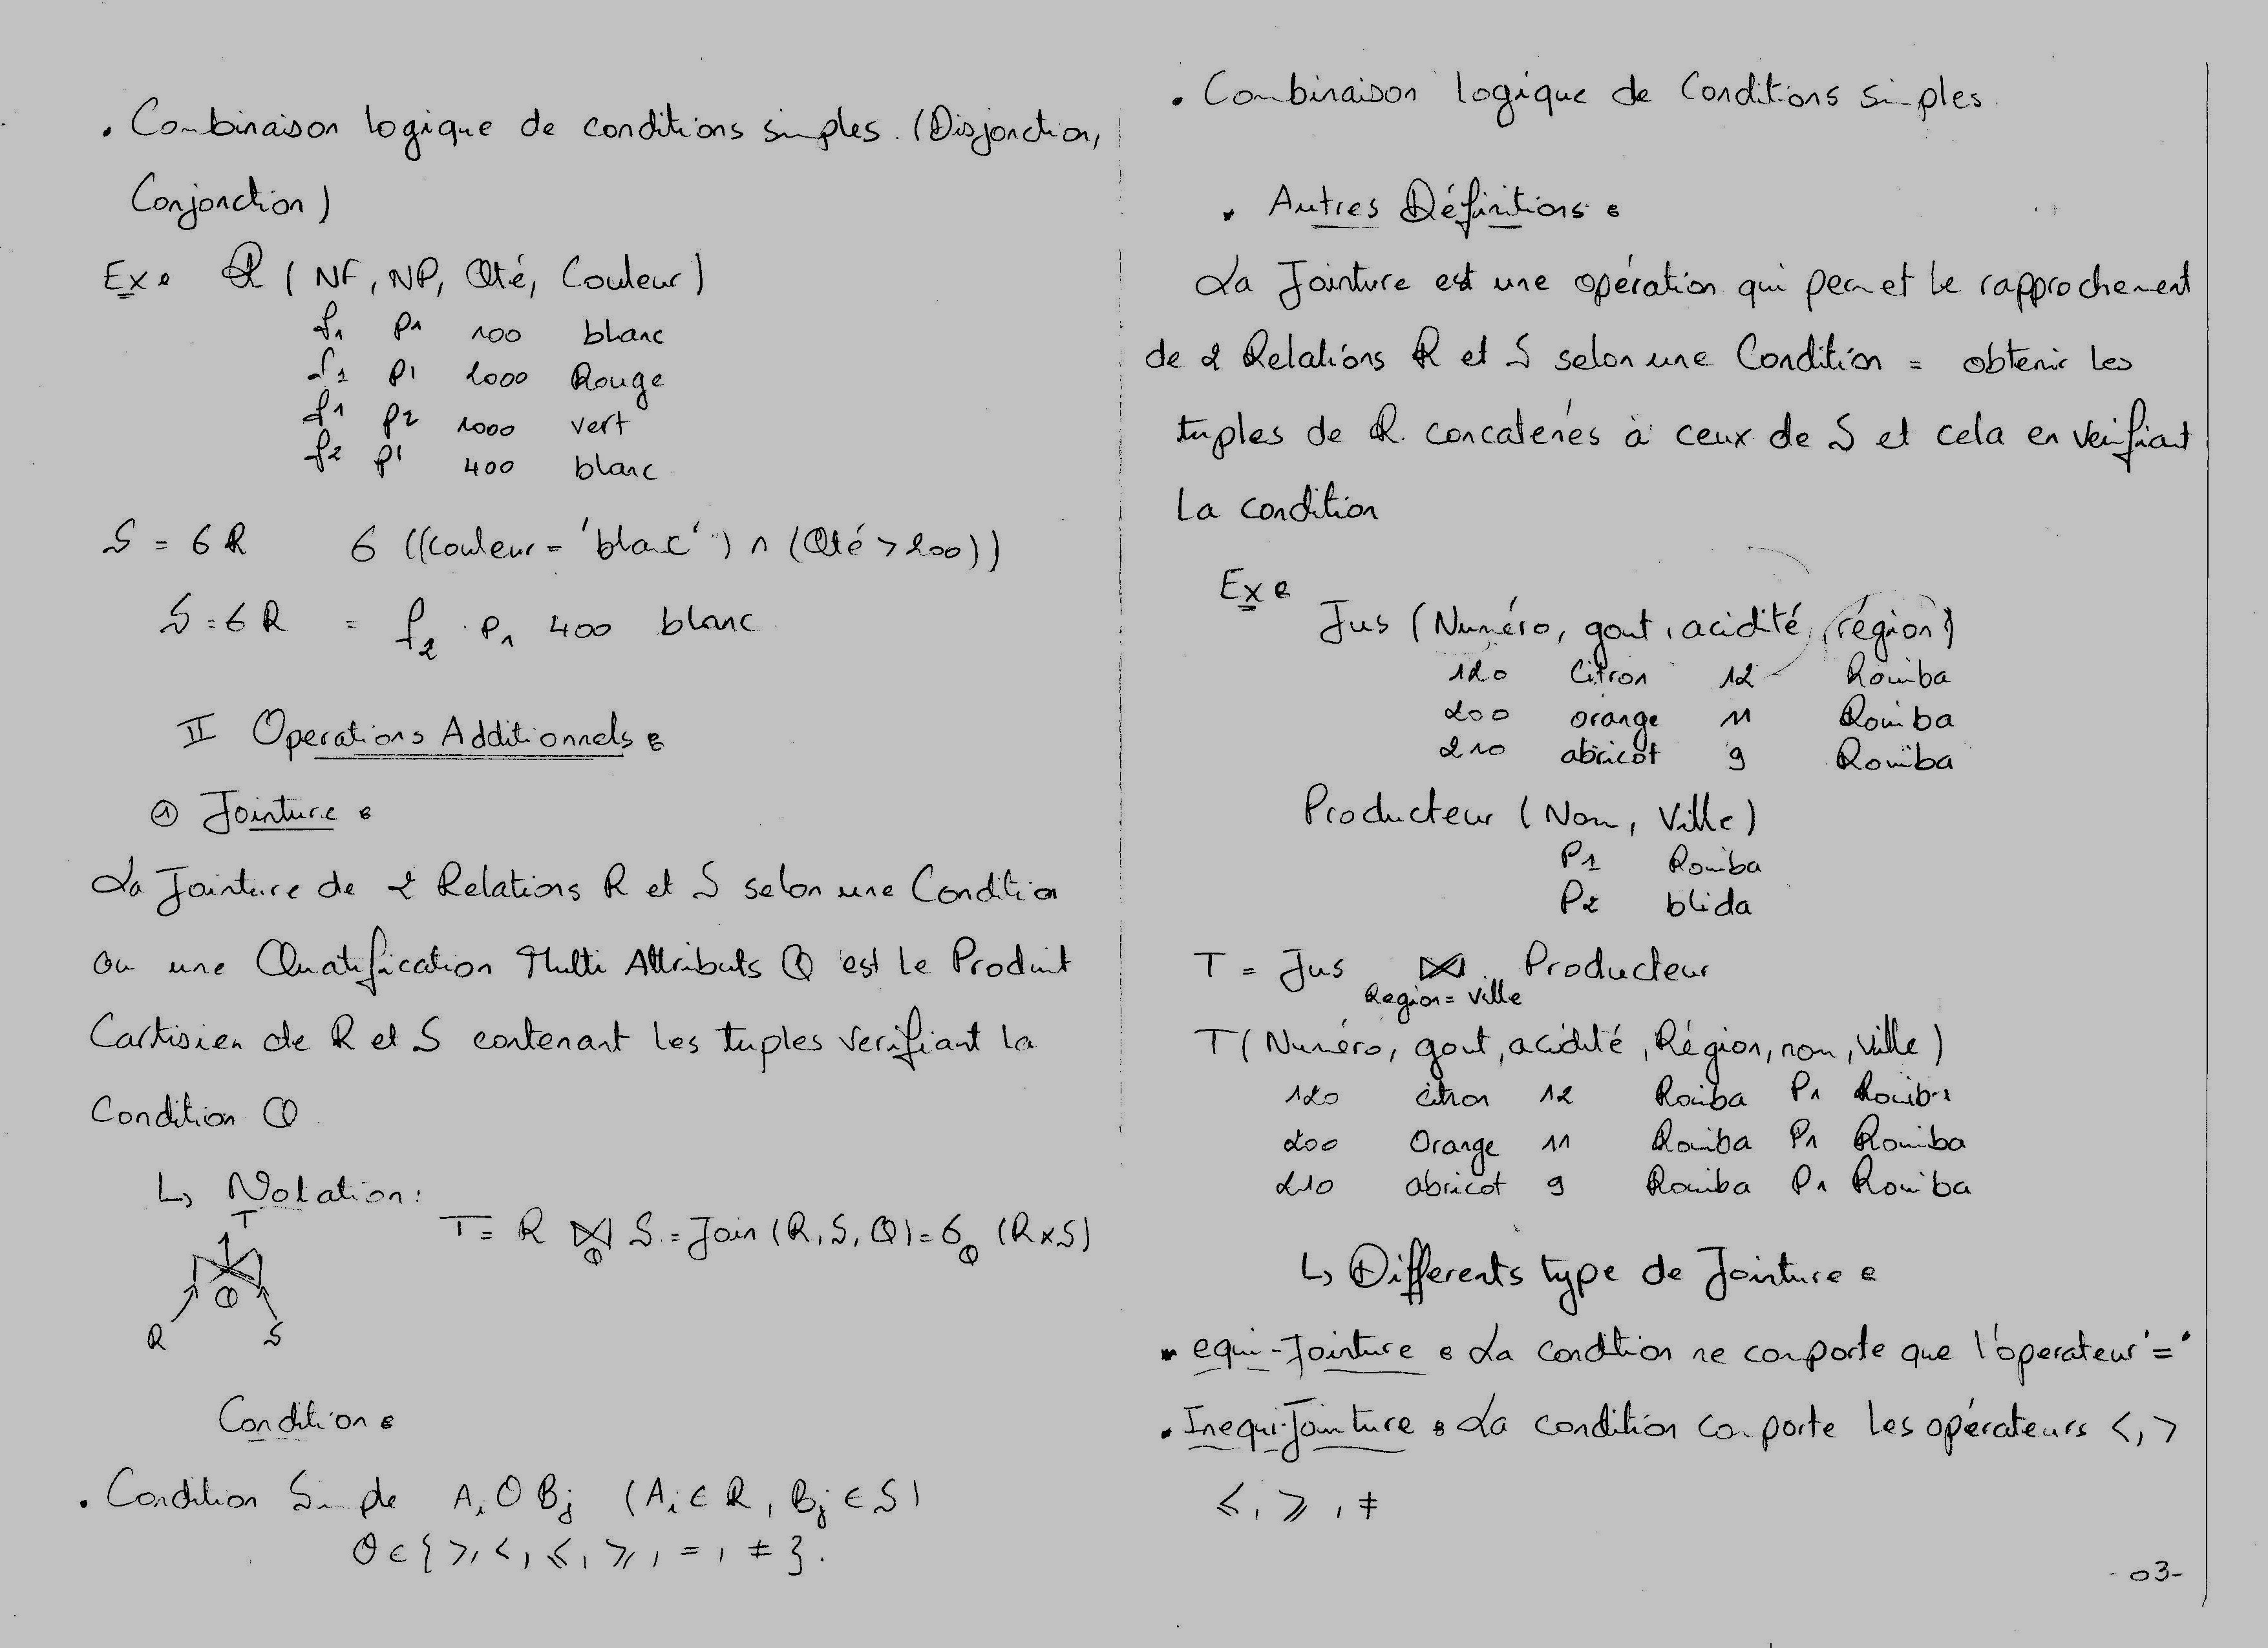 . Combinaison logique de conditions simples. (Disjonction,
Conjonction)
Ex : R ( NF, NP, Qté, Couleur )
f1 P1 100 blanc
f1 P1 2000 Rouge
f1 P2 1000 vert
f2 P1 400 blanc
S = σ R σ ((Couleur = 'blanc') ∧ (Qté > 200))
S = σ R = f2 P1 400 blanc
II Operations Additionnels :
① Jointure :
La Jointure de 2 Relations R et S selon une Condition
ou une Qualification Multi Attributs Q est le Produit
Cartisien de R et S contenant les tuples verifiant la
Condition Q
↳ Notation :
T = R ⋈Q S = Join (R, S, Q) = σQ (R x S)
T
Q
R S
Condition :
. Condition Simple Ai Θ Bj (Ai ∈ R, Bj ∈ S)
Θ ∈ { >, <, ≤, ≥, =, ≠ }.
. Combinaison logique de Conditions simples.
. Autres Définitions :
La Jointure est une opération qui permet le rapprochement
de 2 Relations R et S selon une Condition = obtenir les
tuples de R concatenés à ceux de S et cela en verifiant
La condition
Ex :
Jus (Numéro, gout, acidité, région)
120 Citron 12 Rouiba
200 orange 11 Rouiba
210 abricot 9 Rouiba
Producteur (Nom, Ville)
P1 Rouiba
P2 blida
T = Jus ⋈ Producteur
Region = Ville
T (Numéro, gout, acidité, Région, nom, Ville)
120 citron 12 Rouiba P1 Rouiba
200 Orange 11 Rouiba P1 Rouiba
210 abricot 9 Rouiba P1 Rouiba
↳ Differents type de Jointure :
. equi-Jointure : La condition ne comporte que l'operateur '='
. Inequi-Jointure : La condition comporte les opérateurs <, >
≤, ≥, ≠
- 03 -